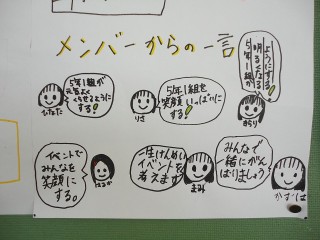 メンバーからの一言
5年1組が
元気よく
くらせるように
する!
ひなた
5年1組を
笑顔いっぱいに
する!
りさ
5年1組が
明るくなる
ようにする!
きらり
イベントで
みんなを
笑顔に
する。
はるか
一生けんめい
イベントを
考えます
まみ
みんなで
一緒にがん
ばりましょう
かずは